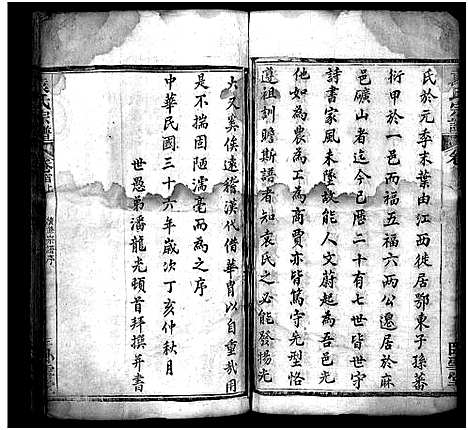 氏於元季末葉由江西徙居鄂東子孫蕃
衍甲於一邑而福五福六兩公遷居於麻
邑礦山者迄今已曆二十有七世皆世守
詩書家風未墜故能人文蔚起為吾邑光
他如為農為工為商賈亦皆篤守先型恪
遵祖訓瞻斯譜者知袁氏之必能發揚光
大又奚俟遠稽漢代借華冑以自重哉用
是不揣固陋濡毫而為之序
中華民國三十六年歲次丁亥仲秋月
世愚弟潘龍光頓首拜撰并書
袁氏宗譜
卷首上